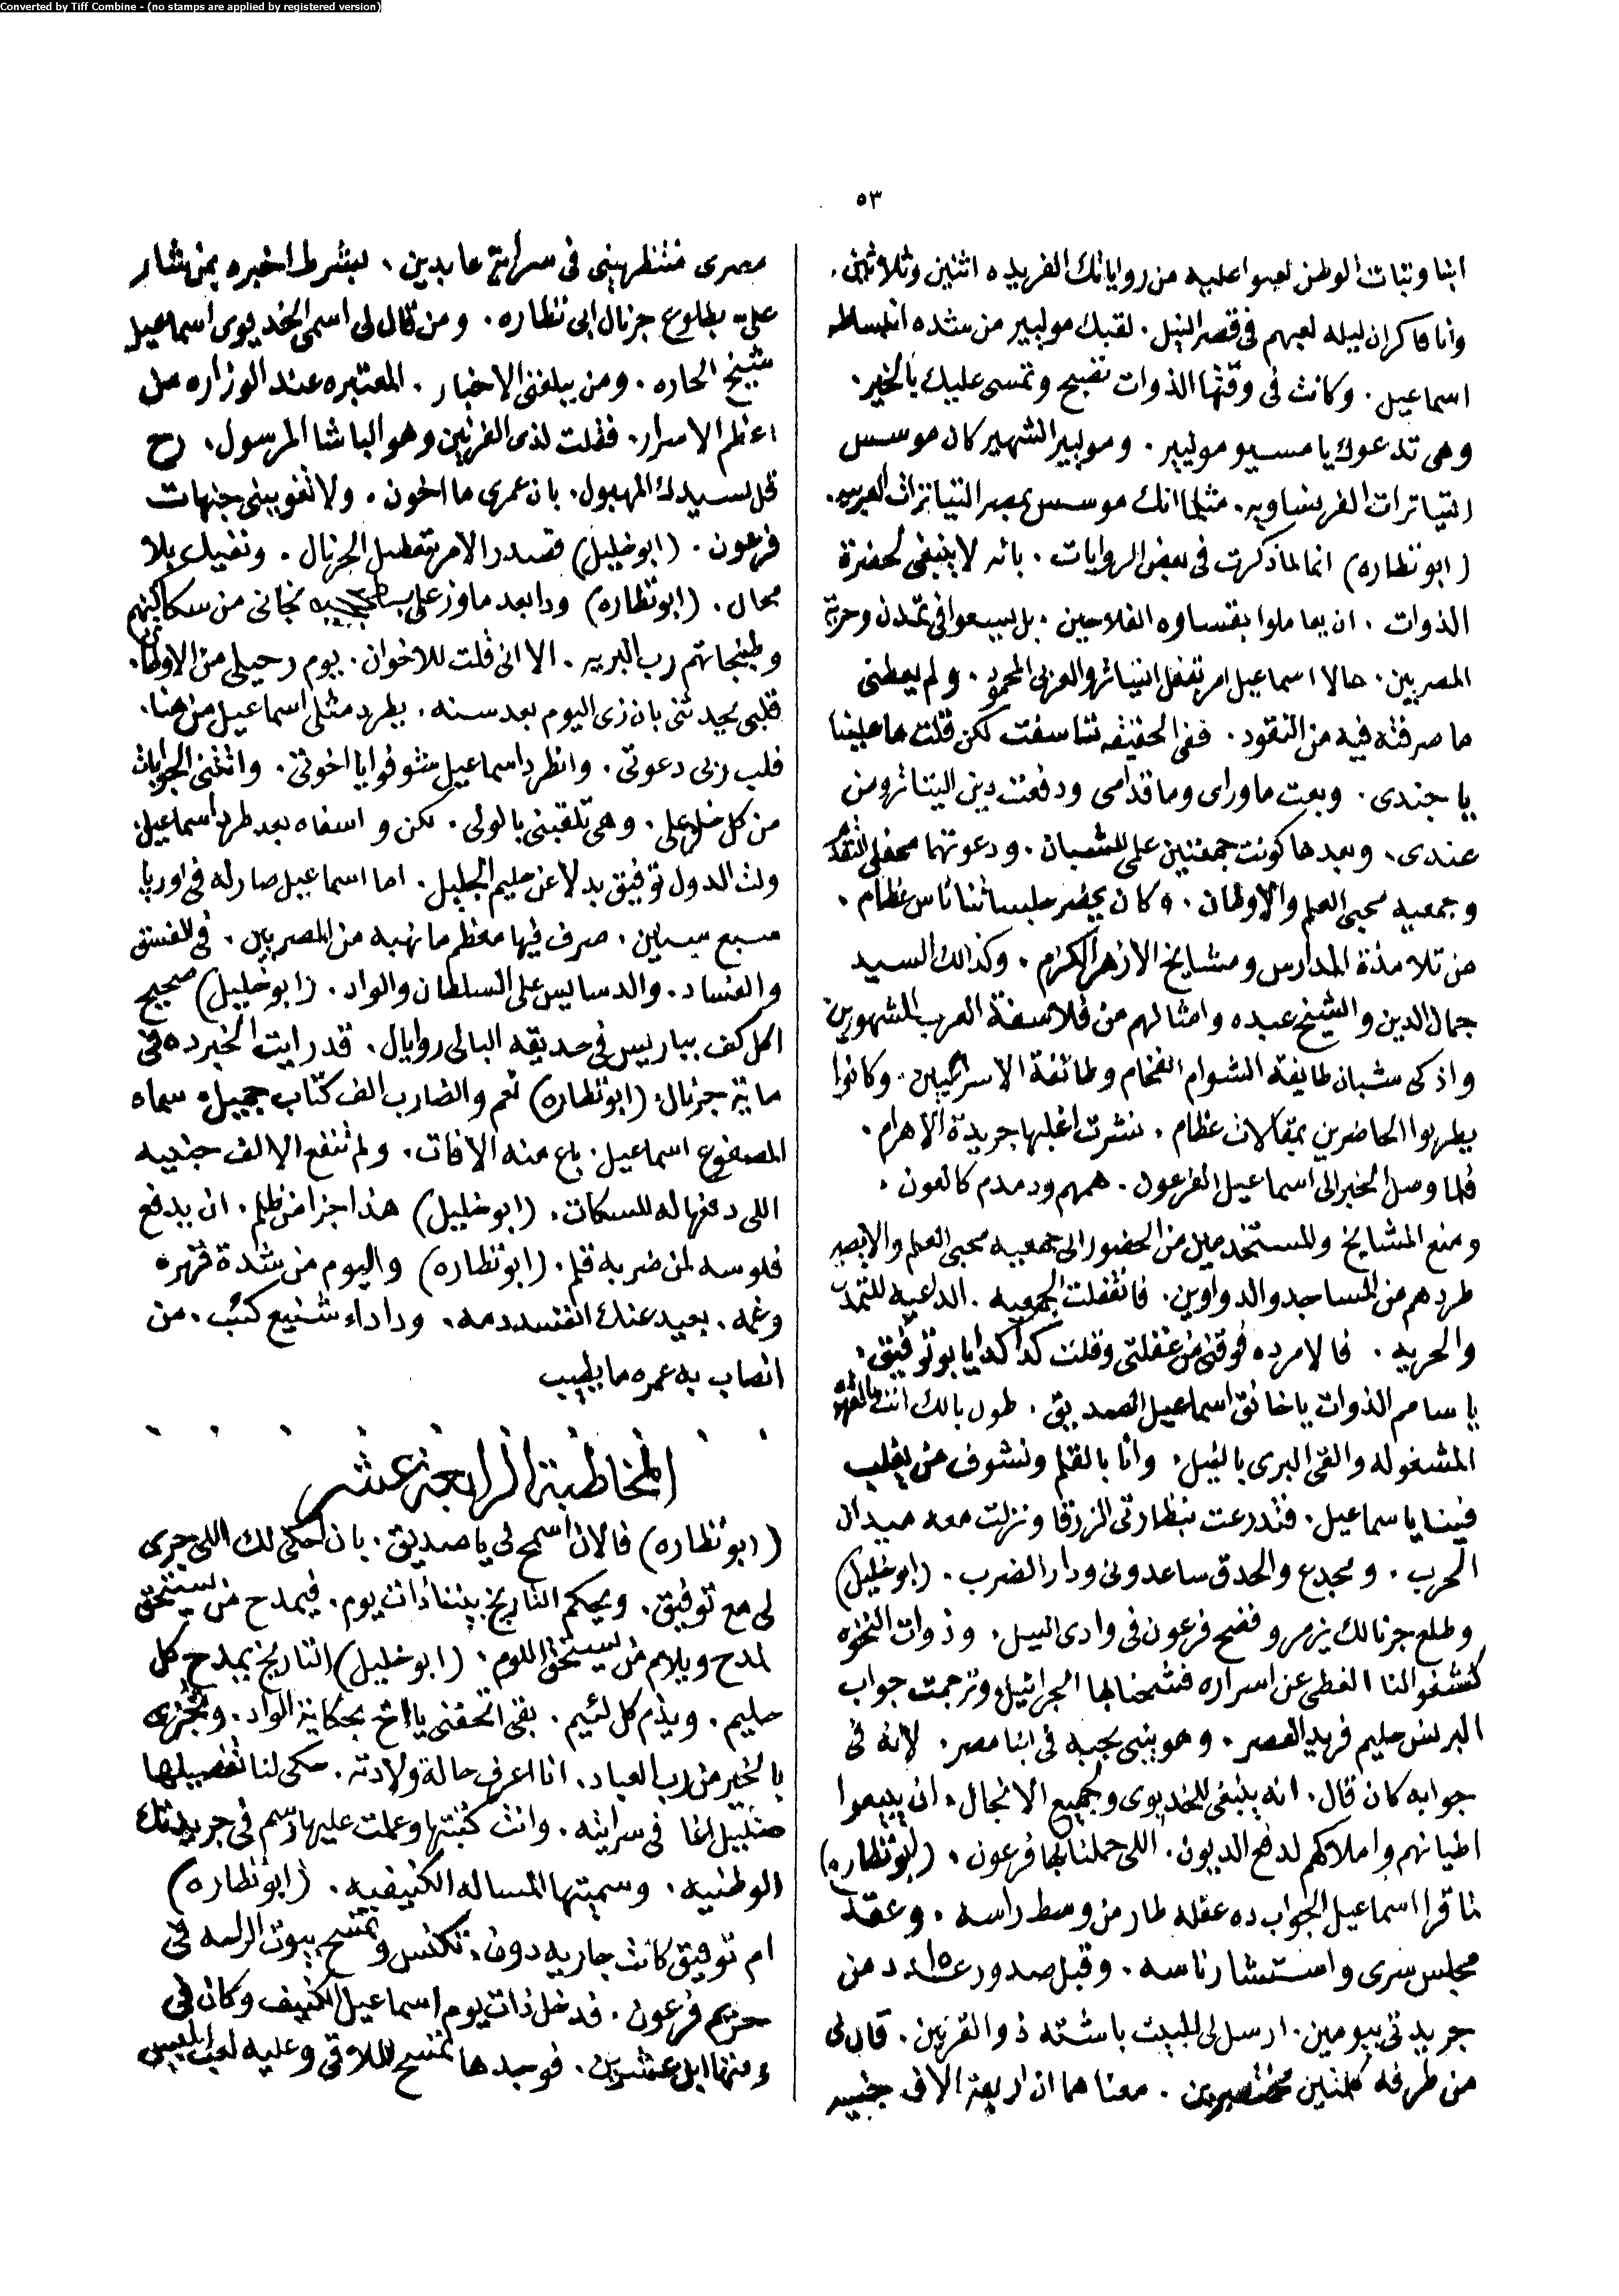 Converted by Tiff Combine - (no stamps are applied by registered version)
٥٣
ابنا وبنات الوطن لعبوا عليه من رواياتك الفريده اثنين وثلاثين.
وانا فاكر ان ليله لعبهم فى قصر النيل. لقبك موليير من شده انبساطه
اسماعيل. وكانت فى وقتها الذوات تصبح وتمسى عليك بالخير.
وهى تدعوك يا مسيو موليير. وموليير الشهير كان موسس
التياترات الفرنساويه. مثلما انك موسس بمصر التياترات العربيه.
(ابو نظاره) انما لما ذكرت فى بعض الروايات. بانه لا ينبغى لحضرة
الذوات. ان يعاملوا بقساوه الفلاحين. بل يسعوا فى تمدن وحرية
المصريين. حالا اسماعيل امر بقفل التياترو العربى المحمود. ولم يعطنى
ما صرفته فيه من النقود. ففى الحقيقه تاسفت لكن قلت ما علينا
يا جندى. وبعت ماوراى وما قدامى ودفعت دين التياترو من
عندى. وبعدها كونت جمعتين على الشبان. ودعوتهما محفل التقدم
وجمعيه محبى العلم والاوطان. وكان يحضر جلساتنا ناس عظام.
من تلامذة المدارس ومشايخ الازهر الكرام. وكذالك السيد
جمال الدين والشيخ عبده وامثالهم من فلاسفة العرب المشهورين
واذكى شبان طايفة الشوام الفخام وطائفة الاسرائيليين. وكانوا
يطربوا الحاضرين بمقالات عظام. نشرت اغلبها جريدة الاهرام.
فلما وصل الخبر الى اسماعيل الفرعون. همهم ودمدم كالعون.
ومنع المشايخ والمستخدمين من الحضور الى جمعيه محبى العلم والا يصير
طردهم من المساجد والدواوين. فانقفلت الجمعيه. الداعيه للتمدن
والحريه. فالامر ده فوقنى من غفلتى وقلت كدا كدا يا بو توفيق.
يا سامم الذوات يا خانق اسماعيل الصديق. طول بالك انت
المشغوله والقى البرى بالنيل. وانا بالقلم ونشوف من يغلب
فينا يا سماعيل. فتدرعت بنظارتى الزرقا ونزلت معه ميدان
الحرب. ومجدع والحدق ساعدونى ودار الضرب. (ابو خليل)
وطلع جرنالك يزمر وفضح فرعون فى وادى النيل. وذوات النخوه
كشفوا لنا الغطى عن اسراره فشحنا بها الجرانيل وترجمت جواب
البرنس حليم فريد العصر. وهو ينبى بحبه فى ابنا مصر. لانه فى
جوابه كان قال. انه ينبغى للخديوى وجميع الانجال. ان يبيعوا
اطيانهم واملاكهم لدفع الديون. اللى حملنا بها فرعون. (ابو نظاره)
لما قرا اسماعيل الجواب ده عقله طار من وسط راسه. وعقد
مجلس سرى واستشار ناسه. وقبل صدور عدد من
جريدتى بيومين. ارسل لى للبيت باشته ذو القرنين. قال لى
من طرفه كلمتين مختصرين. معناهما ان اربعة الاف جنيه
مصرى منتظرينى فى سراية عابدين. بشرط اخبره بمن شار
على بطلوع جرنال ابى نظاره. ومن قال لى اسمى الخديوى اسماعيل
شيخ الحاره. ومن يبلغنى الاخبار. المعتبره عند الوزاره من
اعظم الاسرار. فقلت لذى القرنين وهو الباشا المرسول. رح
قل لسيدك المهبول. بان عمرى ما اخون. ولا تغوينى جنيهات
فرعون. (ابو خليل) فصدر الامر بتعطيل الجرنال. ونفيك بلا
محال. (ابو نظاره) ودا بعد ماوز على نجانى من سكاكينهم
وطبنجاتهم رب البريه. الا انى قلت للاخوان. يوم رحيلى من الاوطان.
قلبى يحدثنى بان زى اليوم بعد سنه. يطرد مثلى اسماعيل من هنا.
فلب ربى دعوتى. وانطرد اسماعيل شوفوا يا اخوتى. واتتنى الجوابات
من كل خل على. وهى تلقبنى بالولى. لكن واسفاه بعد طرد اسماعيل.
ولت الدول توفيق بدلا عن حليم الجليل. اما اسماعيل صار له فى اوربا
سبع سنين. صرف فيها معظم ما نهبه من المصريين. فى الفسق
والفساد. والدسايس على السلطان والواد. (ابو خليل) صحيح
اكل كف بباريس فى حديقه البالى روايال. قد رايت الخبر ده فى
ماية جرنال. (ابو نظاره) نعم والضارب الف كتاب جميل. سماه
المصفوع اسماعيل. باع منه الافات. ولم تنفع الالف جنيه
اللى دفعها له للسكات. (ابو خليل) هذا جزا من ظلم. ان يدفع
فلوسه لمن ضربه قلم. (ابو نظاره) واليوم من شدة قهره
وغمه. بعيد عنك انفسد دمه. ودا داء شنيع كئب. من
انصاب به عمره ما يطيب
المخاطبة الرابعة عشر
(ابو نظاره) فالان اسمح لى يا صديق. بان احكى لك اللى جرى
لى مع توفيق. ويحكم التاريخ بيننا ذات يوم. فيمدح من يستحق
لمدح ويلام من يستحق اللوم. (ابو خليل) التاريخ يمدح كل
حليم. ويذم كل لئيم. بقى اتحفنى يا اخ بحكاية الواد. وتجزى
بالخير من رب العباد. انا اعرف حالة ولادته. حكى لنا تفصيلها
خليل اغا فى سرايته. وانت كتبتها وعملت عليها رسم فى جريدتك
الوطنيه. وسميتها المساله الكنيفيه. (ابو نظاره)
ام توفيق كانت جاريه دون. تكنس وتمسح بيوت الراحه فى
حريم فرعون. فدخل ذات يوم اسماعيل الكنيف وكان فى
وقتها ابن عشرين. فوجدها تمسح الملاقى وعليه لعب ابليس